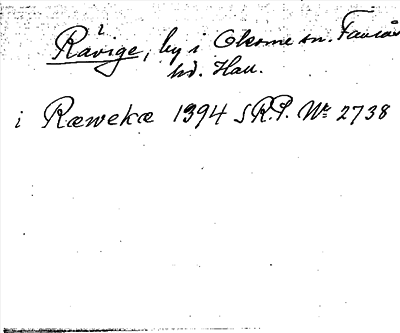 Råvige, by i Okome sn. Faurås
hd. Hall.
i Ræwekæ 1394 SRP. Nr 2738